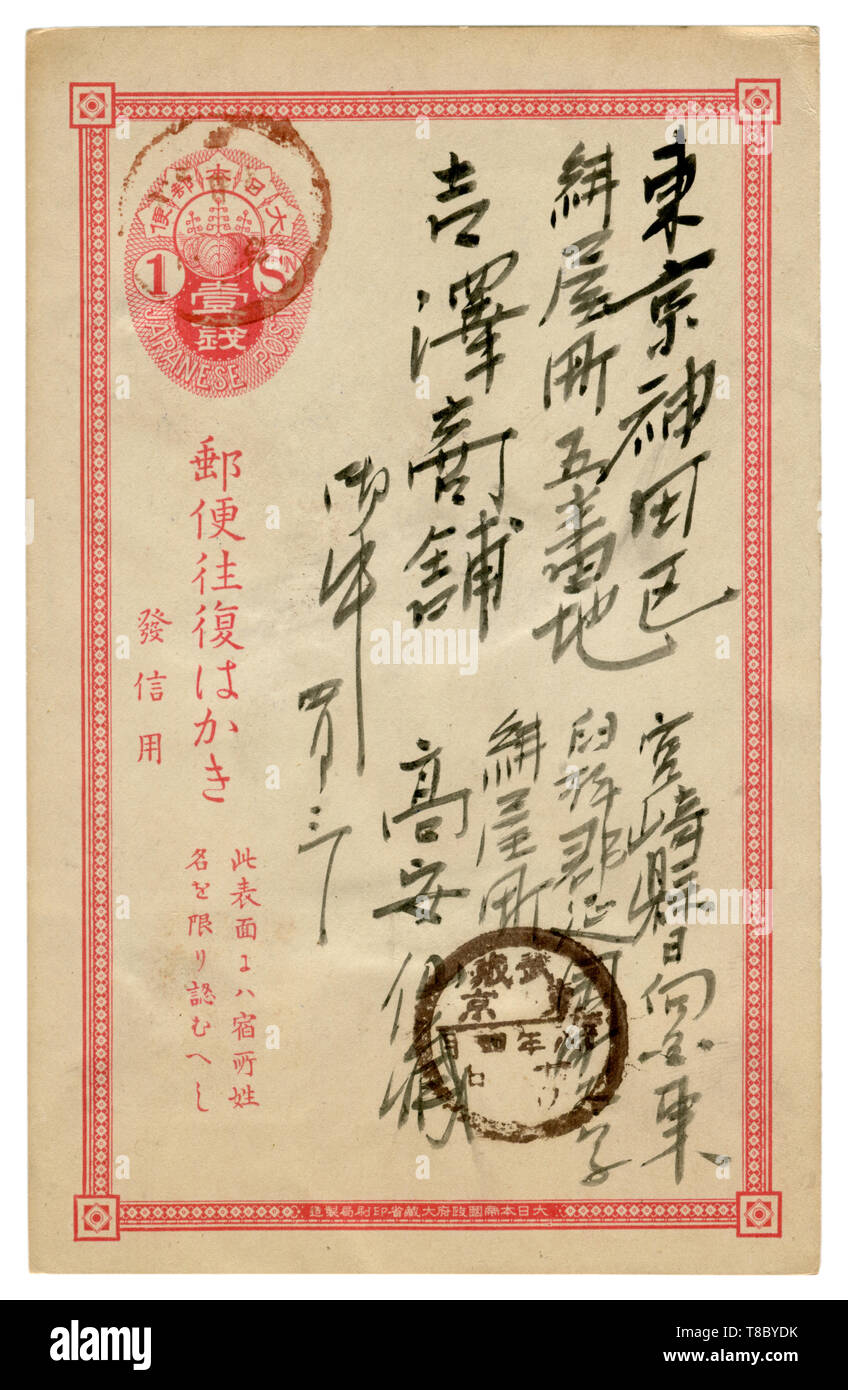 東京神田区
紺屋町五番地
吉澤商舗
御中
宮崎縣日向国東
臼杵郡延岡
紺屋町
高安
大日本郵便
1 S
壹錢
JAPANESE POST
郵便往復はかき
發信用
此表面にハ宿所姓
名を限り認むへし
武蔵
東京
年四月
大日本帝國政府大藏省印刷局製造
alamy
Image ID: T8BYDK
www.alamy.com